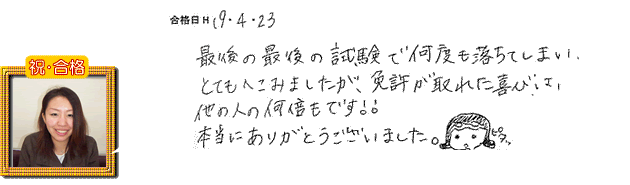 合格日 H 19・4・23
祝・合格
最後の最後の試験で何度も落ちてしまい、
とてもへこみましたが、免許が取れた喜びは、
他の人の何倍もです!!
本当にありがとうございました。
ピタッ